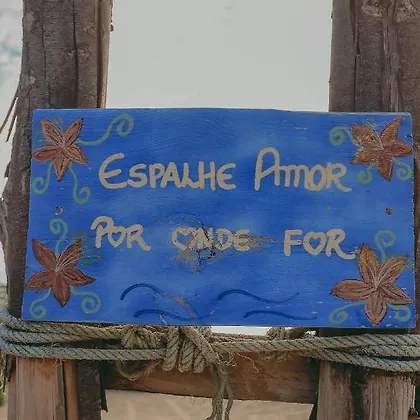 ESPALHE AMOR
POR ONDE FOR